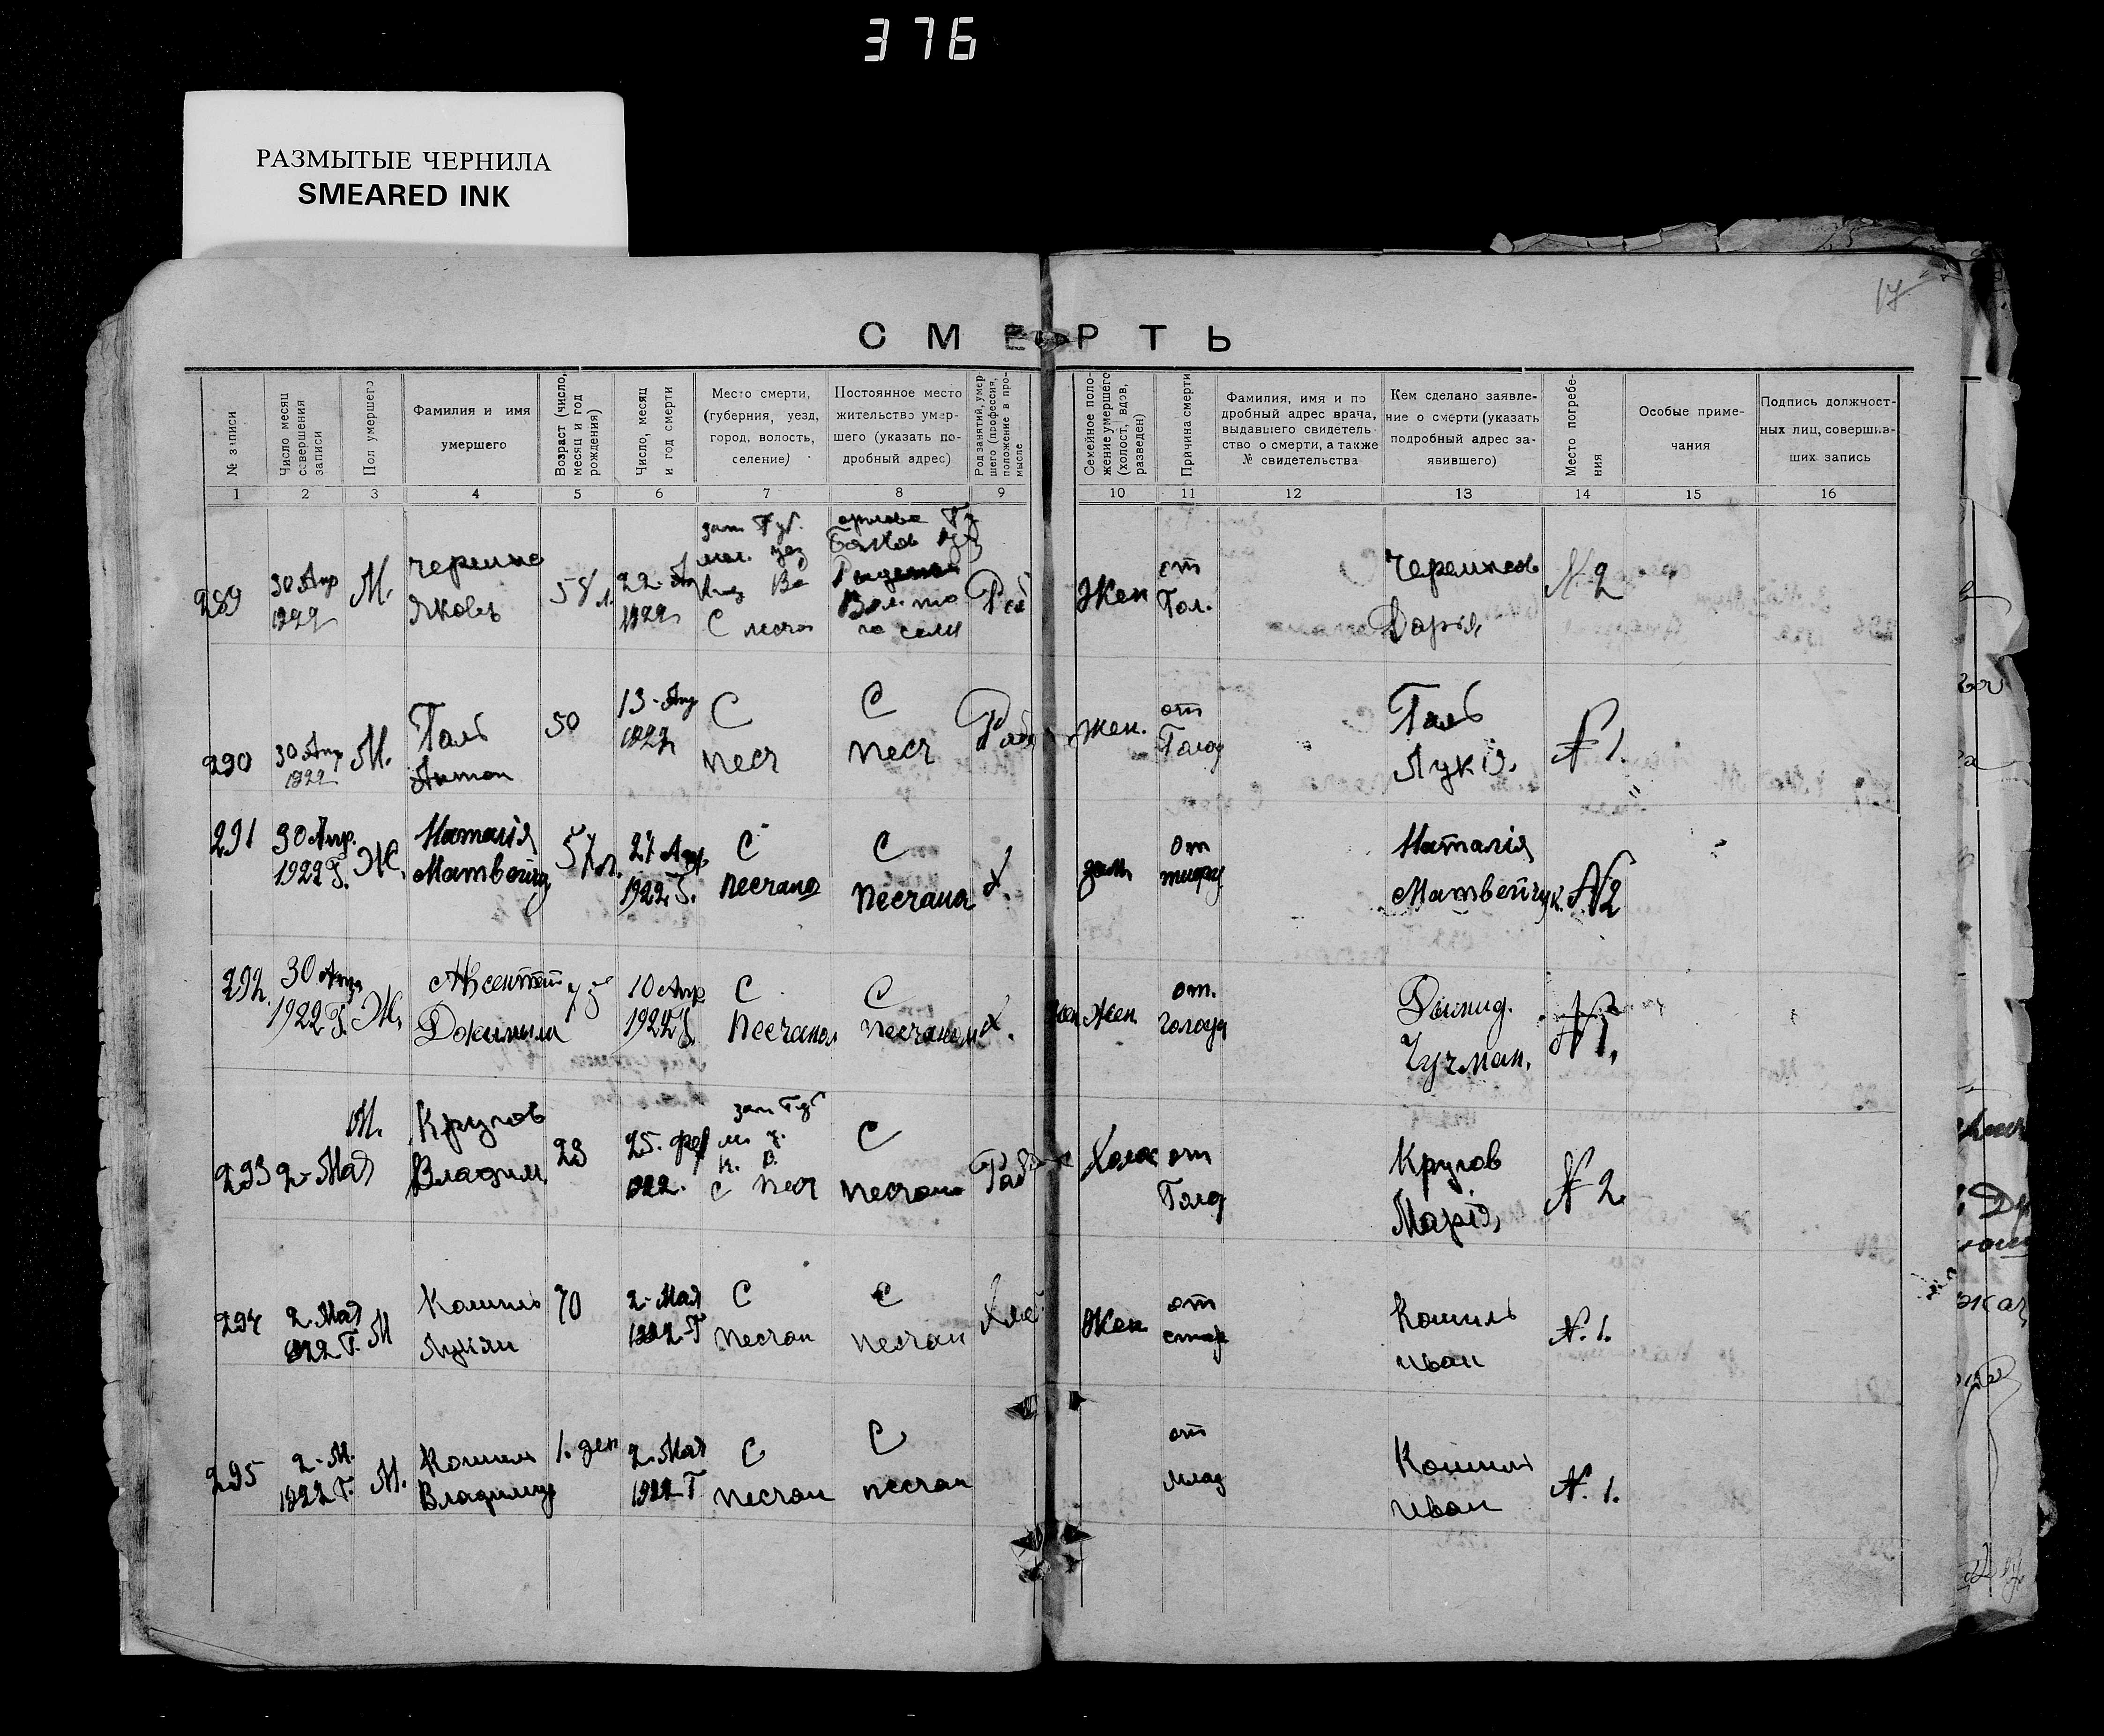 376
РАЗМЫТЫЕ ЧЕРНИЛА
SMEARED INK
17
СМЕРТЬ
№ записи
Число месяц совершения записи
Пол умершего
Фамилия и имя умершего
Возраст (число, месяц и год рождения)
Число, месяц и год смерти
Место смерти, (губерния, уезд, город, волость, селение)
Постоянное место жительство умершего (указать подробный адрес)
Род занятий, умершего (профессия, положение в промысле
Семейное положение умершего (холост, вдов, разведен)
Причина смерти
Фамилия, имя и подробный адрес врача, выдавшего свидетельство о смерти, а также № свидетельства
Кем сделано заявление о смерти (указать подробный адрес заявившего)
Место погребения
Особые примечания
Подпись должностных лиц, совершивших запись
1 2 3 4 5 6 7 8 9 10 11 12 13 14 15 16
289 30 Апр 1922 М. Яковъ 22 1922 Жен от Гол. Дарія N 2
290 30 Апр 1922 М. Галь Антон 50 13-Апр 1922 С Песч С Песч Раб Жен. от Голод Галь Лукія. N 1.
291 30 Апр. 1922 Г. Ж. Наталія 57 л. 27 Апр 1922 Г. С Песчано С Песчана Х. от тифу Наталія Матвейчук. N 2
292. 30 Апр 1922 Г. Ж. 75 10 Апр 1922 Г. С С Х. Жен от. голода Чучман. N 1.
293 2-Мая М. Кругов Владим. 23 25. фев 922. зап Губ м. у. К. В. С Песч С Песчано Раб Холос от Голод Кругов Марія N 2.
294 2-Мая 1922 Г. М Кошиль Лукіян 70 2-Мая 1922-Г С Песчан С Песчан Хлеб Жен от стар Кошиль Иван N. 1.
295 2-М. 1922 Г. М. Кошил Владимир 1. ден 2. Мая 1922 Г С Песчан С Песчан от млад Кошиль Иван N. 1.